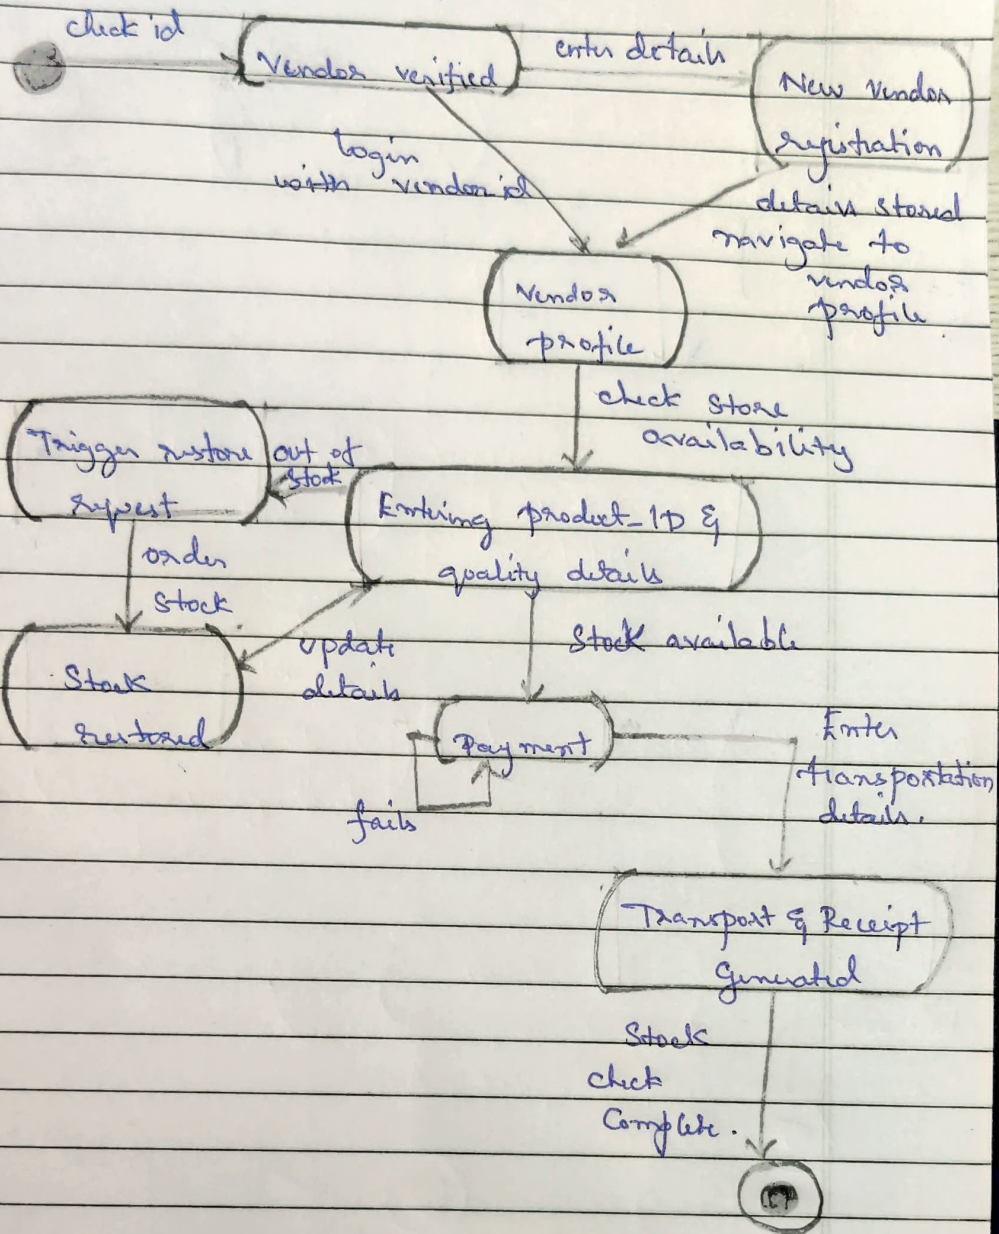 check id
Vendor verified
enter details
New vendor
registration
Login
with vendor id
details stored
navigate to
vendor
profile
Vendor
profile
check store
availability
Trigger restore
request
out of
stock
Entering product_ID &
quality details
order
stock
update
details
Stock available
Stock
restored
Payment
fails
Enter
transportation
details.
Transport & Receipt
Generated
Stock
check
Complete.